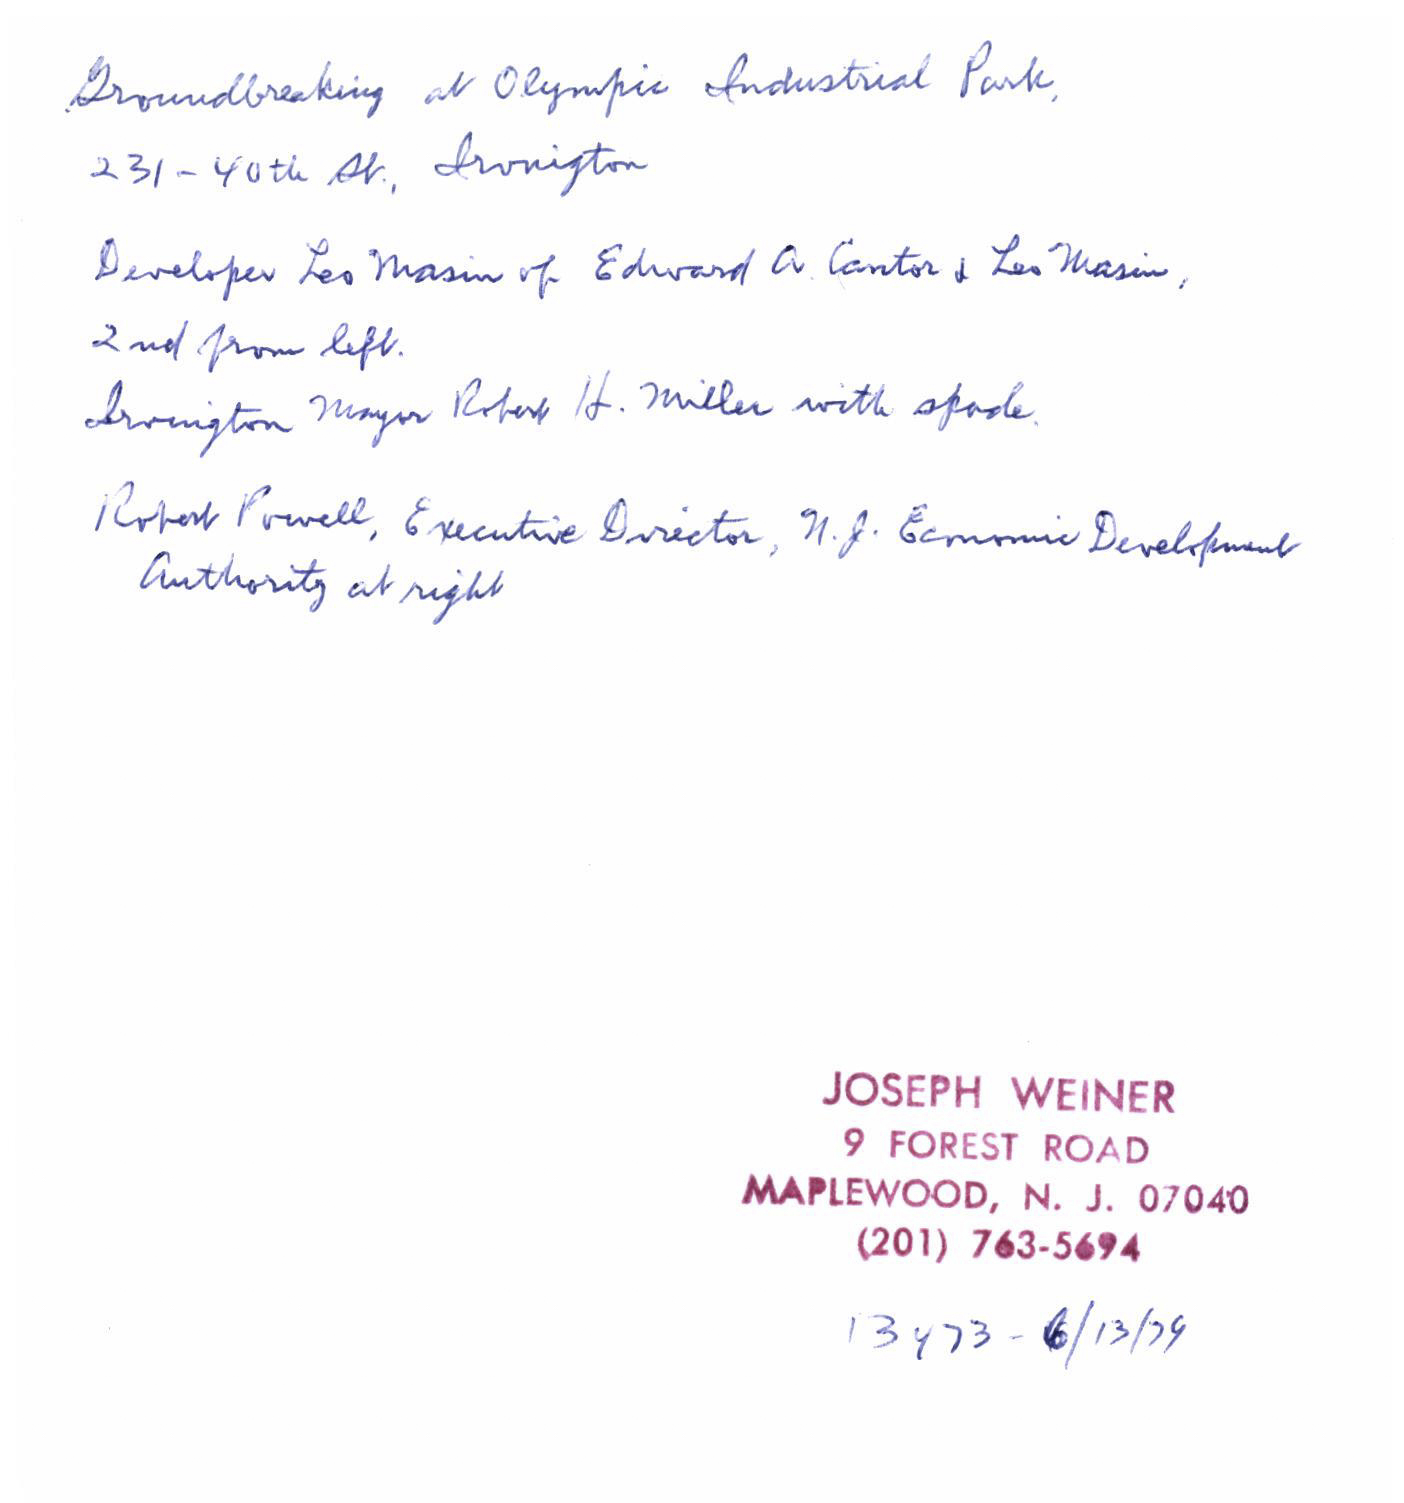 Groundbreaking at Olympic Industrial Park,
231-40th St., Irvington
Developer Leo Masin of Edward A. Cantor & Leo Masin,
2nd from left.
Irvington Mayor Robert H. Miller with spade.
Robert Powell, Executive Director, N.J. Economic Development
Authority at right
JOSEPH WEINER
9 FOREST ROAD
MAPLEWOOD, N. J. 07040
(201) 763-5694
13473 - 6/13/79